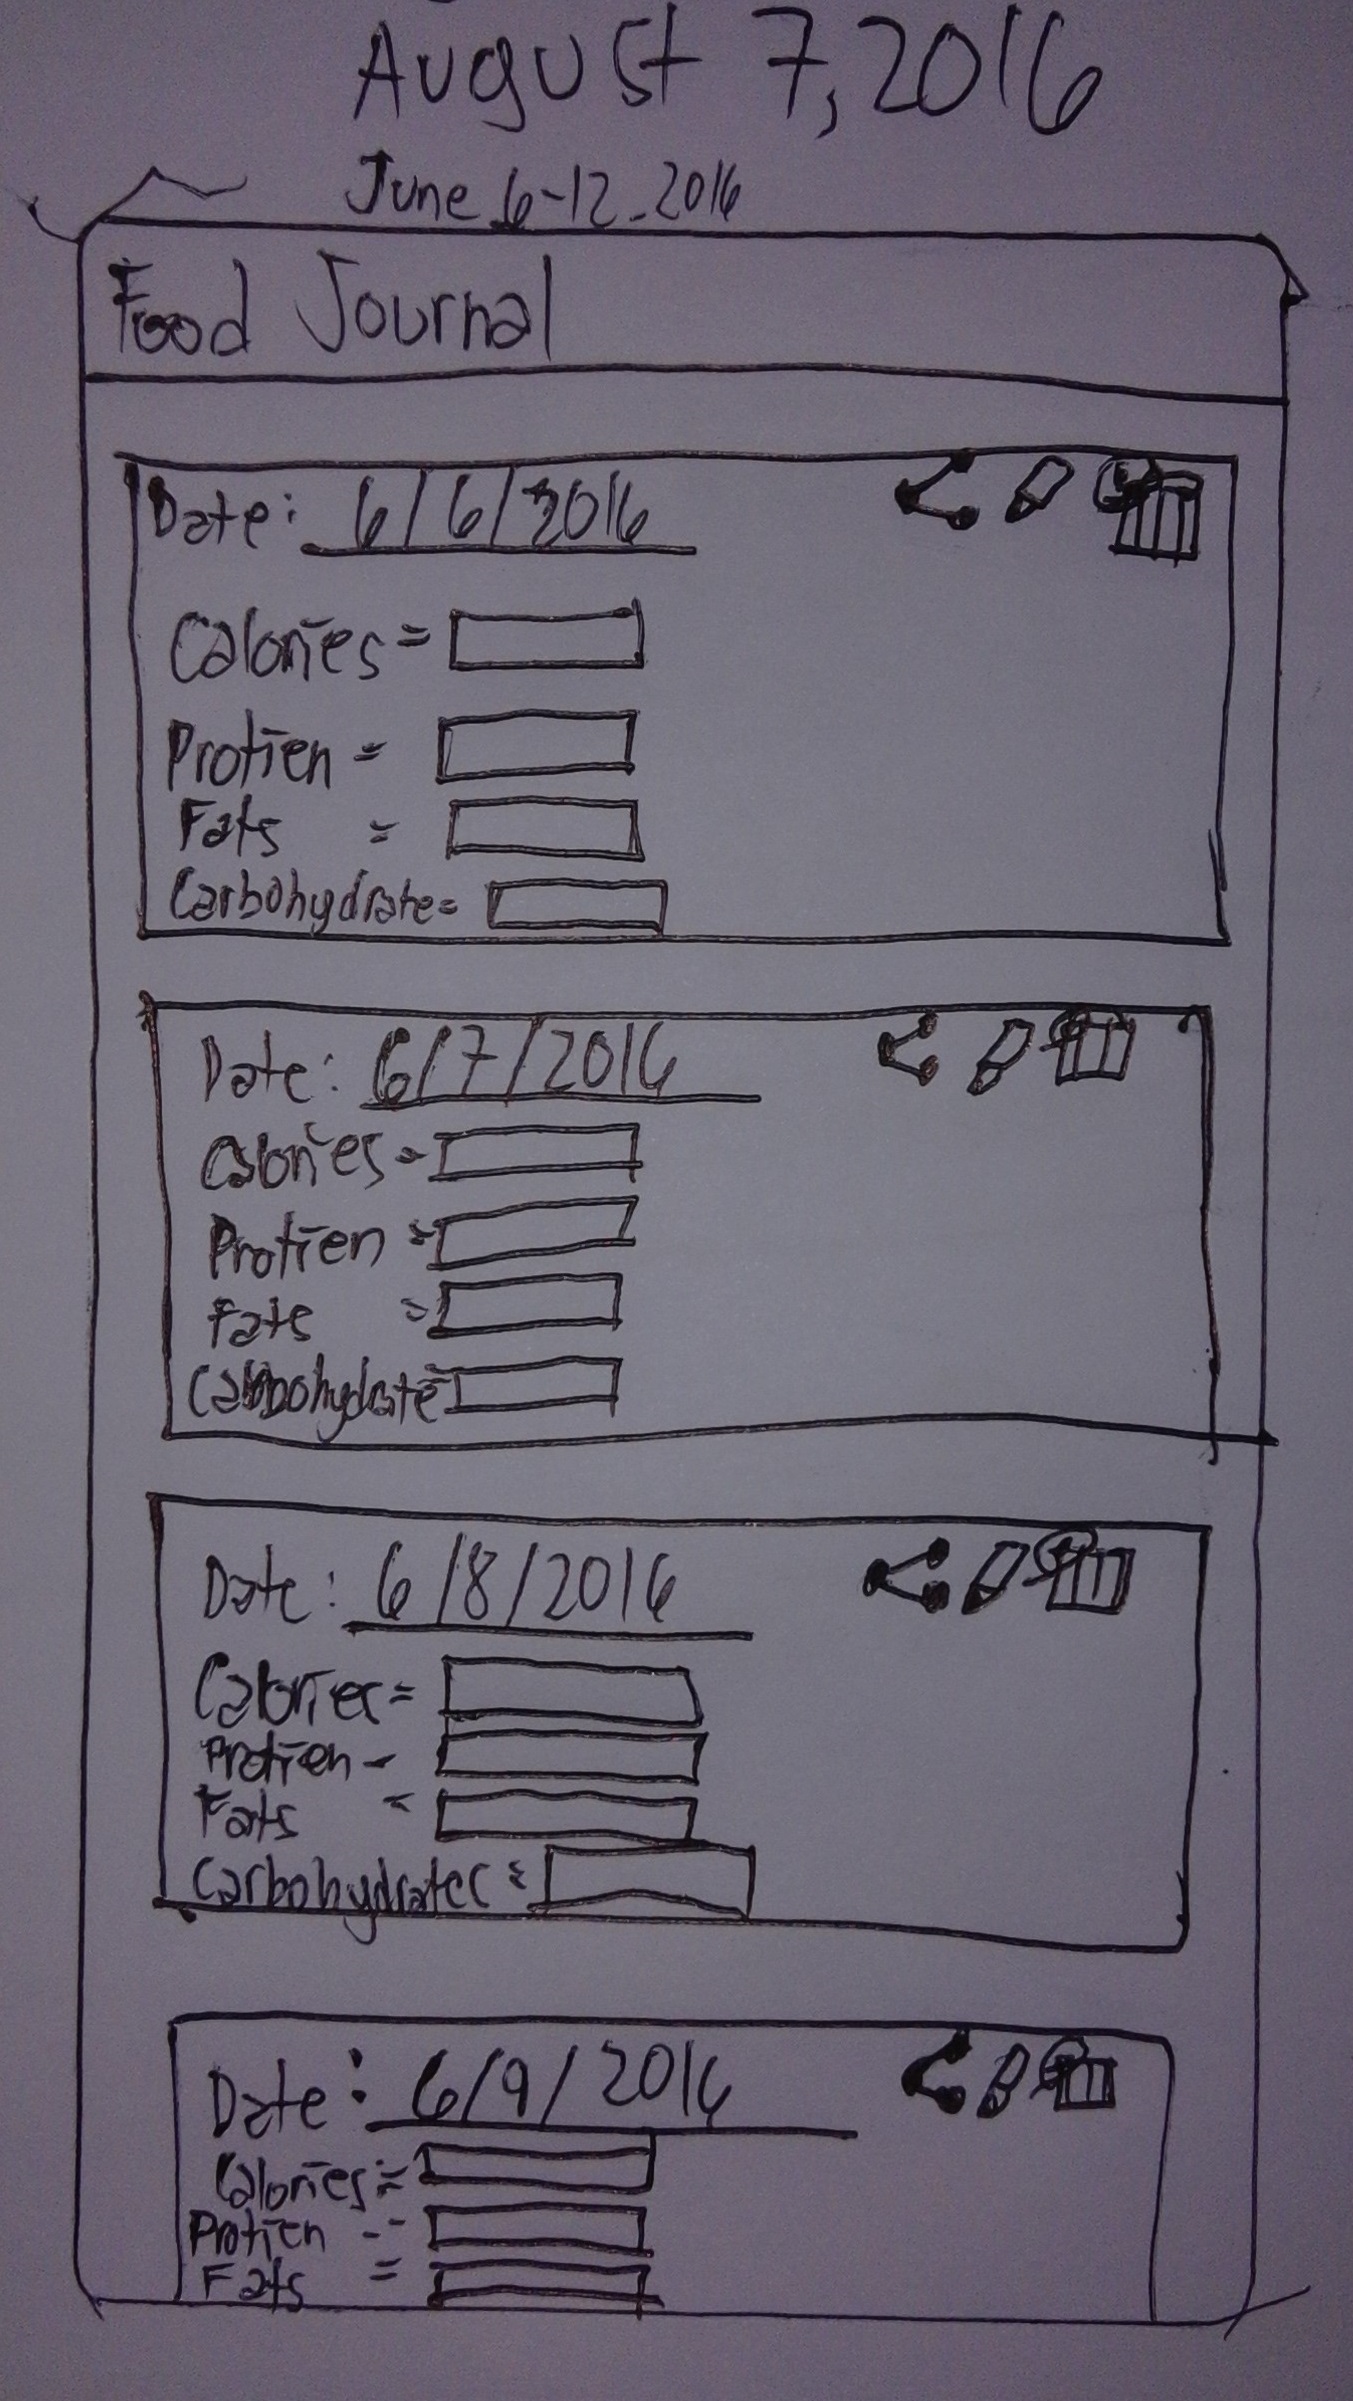 August 7, 2016
June 6-12-2016
Food Journal
Date: 6/6/2016
Calories =
Protien =
Fats =
Carbohydrate =
Date: 6/7/2016
Calories =
Protien =
Fats =
Carbohydrate =
Date: 6/8/2016
Calories =
Protien -
Fats =
Carbohydrates =
Date: 6/9/2016
Calories =
Protien =
Fats =